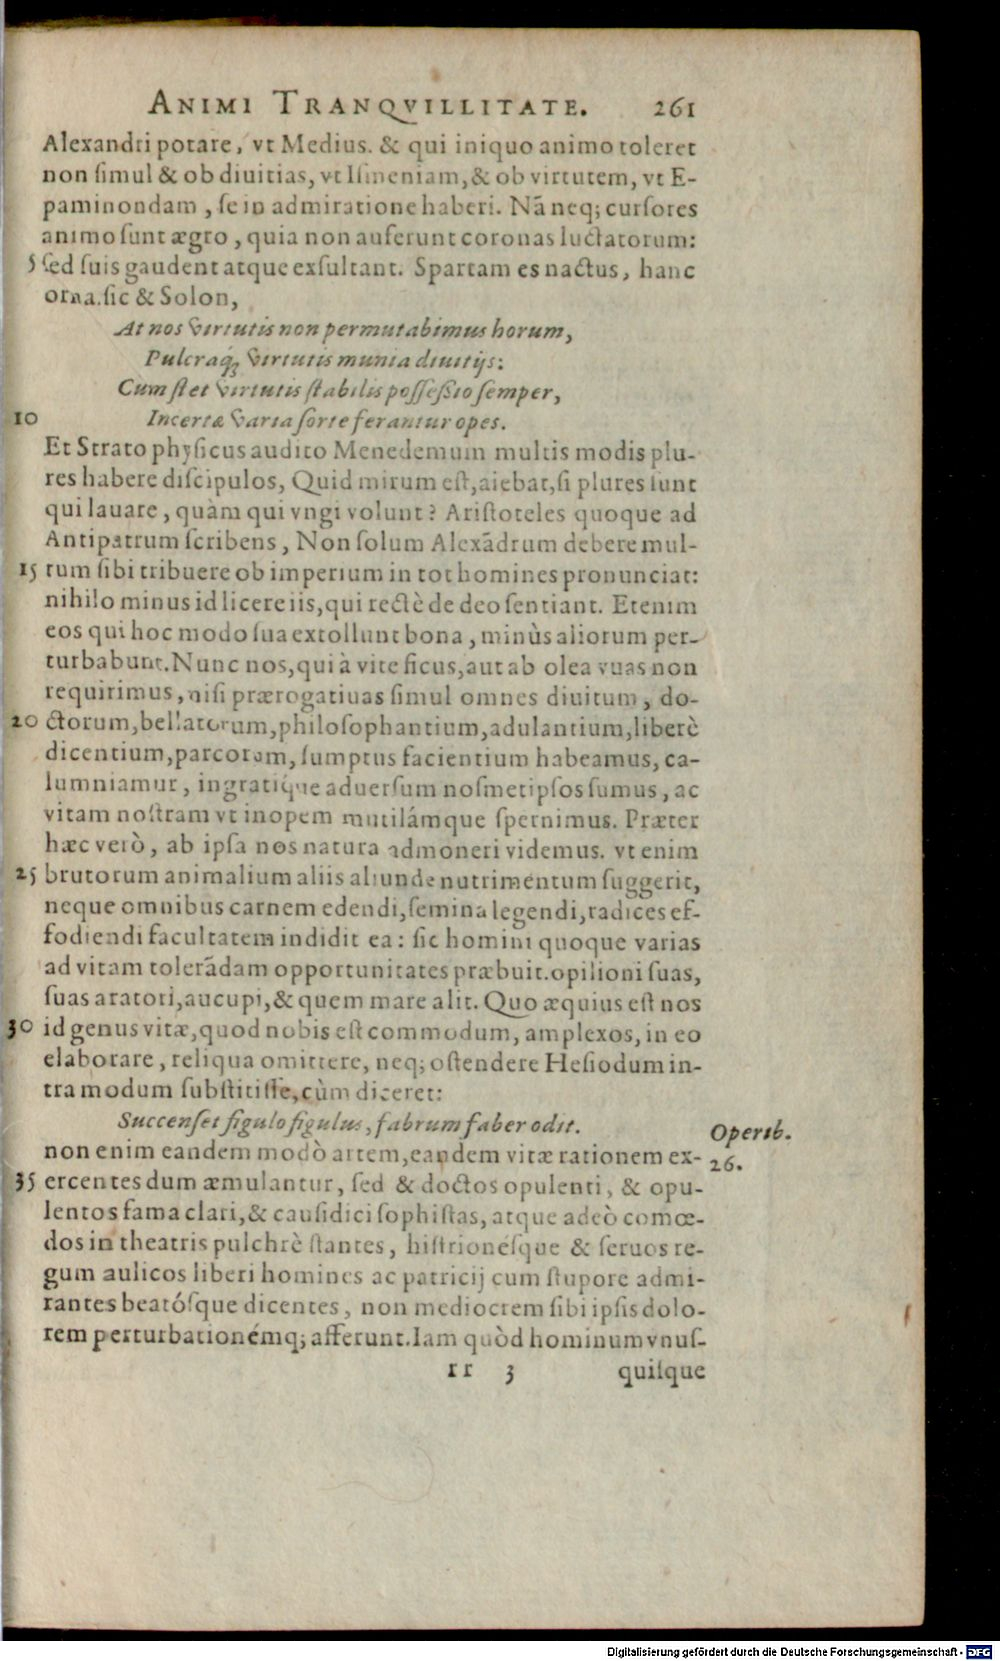 ANIMI TRANQVILLITATE. 261
Alexandri potare, vt Medius. & qui iniquo animo toleret
non ſimul & ob diuitias, vt Iſmeniam, & ob virtutem, vt E-
paminondam, ſe in admiratione haberi. Nā neq; curſores
animo ſunt ægro, quia non auferunt coronas luctatorum:
5 ſed ſuis gaudent atque exſultant. Spartam es nactus, hanc
orna. ſic & Solon,
At nos virtutis non permutabimus horum,
Pulcraq; virtutis munia diuitijs:
Cùm ſtet virtutis ſtabilis poſſeſſio ſemper,
10 Incertæ varia ſorte ferantur opes.
Et Strato phyſicus audito Menedemum multis modis plu-
res habere diſcipulos, Quid mirum eſt, aiebat, ſi plures ſunt
qui lauare, quàm qui vngi volunt? Ariſtoteles quoque ad
Antipatrum ſcribens, Non ſolum Alexādrum debere mul-
15 tum ſibi tribuere ob imperium in tot homines pronunciat:
nihilo minus id licere iis, qui rectè de deo ſentiant. Etenim
eos qui hoc modo ſua extollunt bona, minùs aliorum per-
turbabunt. Nunc nos, qui à vite ficus, aut ab olea vuas non
requirimus, niſi prærogatiuas ſimul omnes diuitum, do-
20 ctorum, bellatorum, philoſophantium, adulantium, liberè
dicentium, parcorum, ſumptus facientium habeamus, ca-
lumniamur, ingratíque aduerſum noſmetipſos ſumus, ac
vitam noſtram vt inopem mutilámque ſpernimus. Præter
hæc verò, ab ipſa nos natura admoneri videmus. vt enim
25 brutorum animalium aliis aliunde nutrimentum ſuggerit,
neque omnibus carnem edendi, ſemina legendi, radices ef-
fodiendi facultatem indidit ea: ſic homini quoque varias
ad vitam tolerādam opportunitates præbuit. opilioni ſuas,
ſuas aratori, aucupi, & quem mare alit. Quo æquius eſt nos
30 id genus vitæ, quod nobis eſt commodum, amplexos, in eo
elaborare, reliqua omittere, neq; oſtendere Heſiodum in-
tra modum ſubſtitiſſe, cùm diceret:
Succenſet figulo figulus, fabrum faber odit.
Operib.
26.
non enim eandem modò artem, eandem vitæ rationem ex-
35 ercentes dum æmulantur, ſed & doctos opulenti, & opu-
lentos fama clari, & cauſidici ſophiſtas, atque adeò comœ-
dos in theatris pulchrè ſtantes, hiſtrionéſque & ſeruos re-
gum aulicos liberi homines ac patricij cum ſtupore admi-
rantes beatóſque dicentes, non mediocrem ſibi ipſis dolo-
rem perturbationémq; afferunt. Iam quòd hominum vnuſ-
rr 3 quiſque
Digitalisierung gefördert durch die Deutsche Forschungsgemeinschaft - DFG